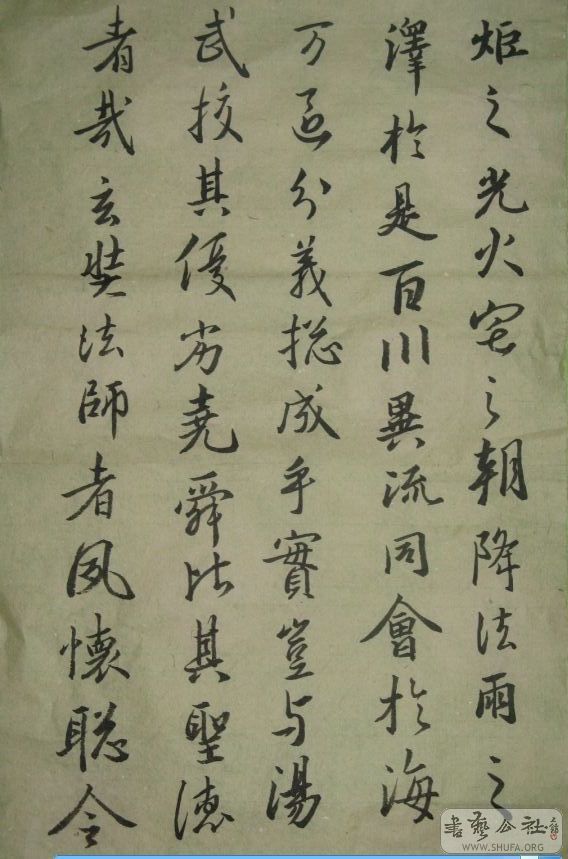 炬之光火宅之朝降法雨之
澤於是百川異流同會於海
万區分義揔成乎實豈与湯
武挍其優劣堯舜比其聖德
者哉玄奘法師者夙懷聡令
書藝公社
WWW.SHUFA.ORG